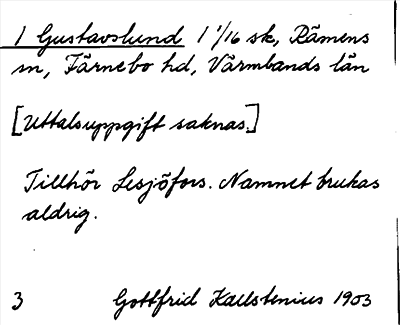 1 Gustavslund 1 1/16 sk, Rämens
sn, Färnebo hd, Värmlands län
[Uttalsuppgift saknas.]
Tillhör Lesjöfors. Namnet brukas
aldrig.
3 Gottfrid Kallstenius 1903